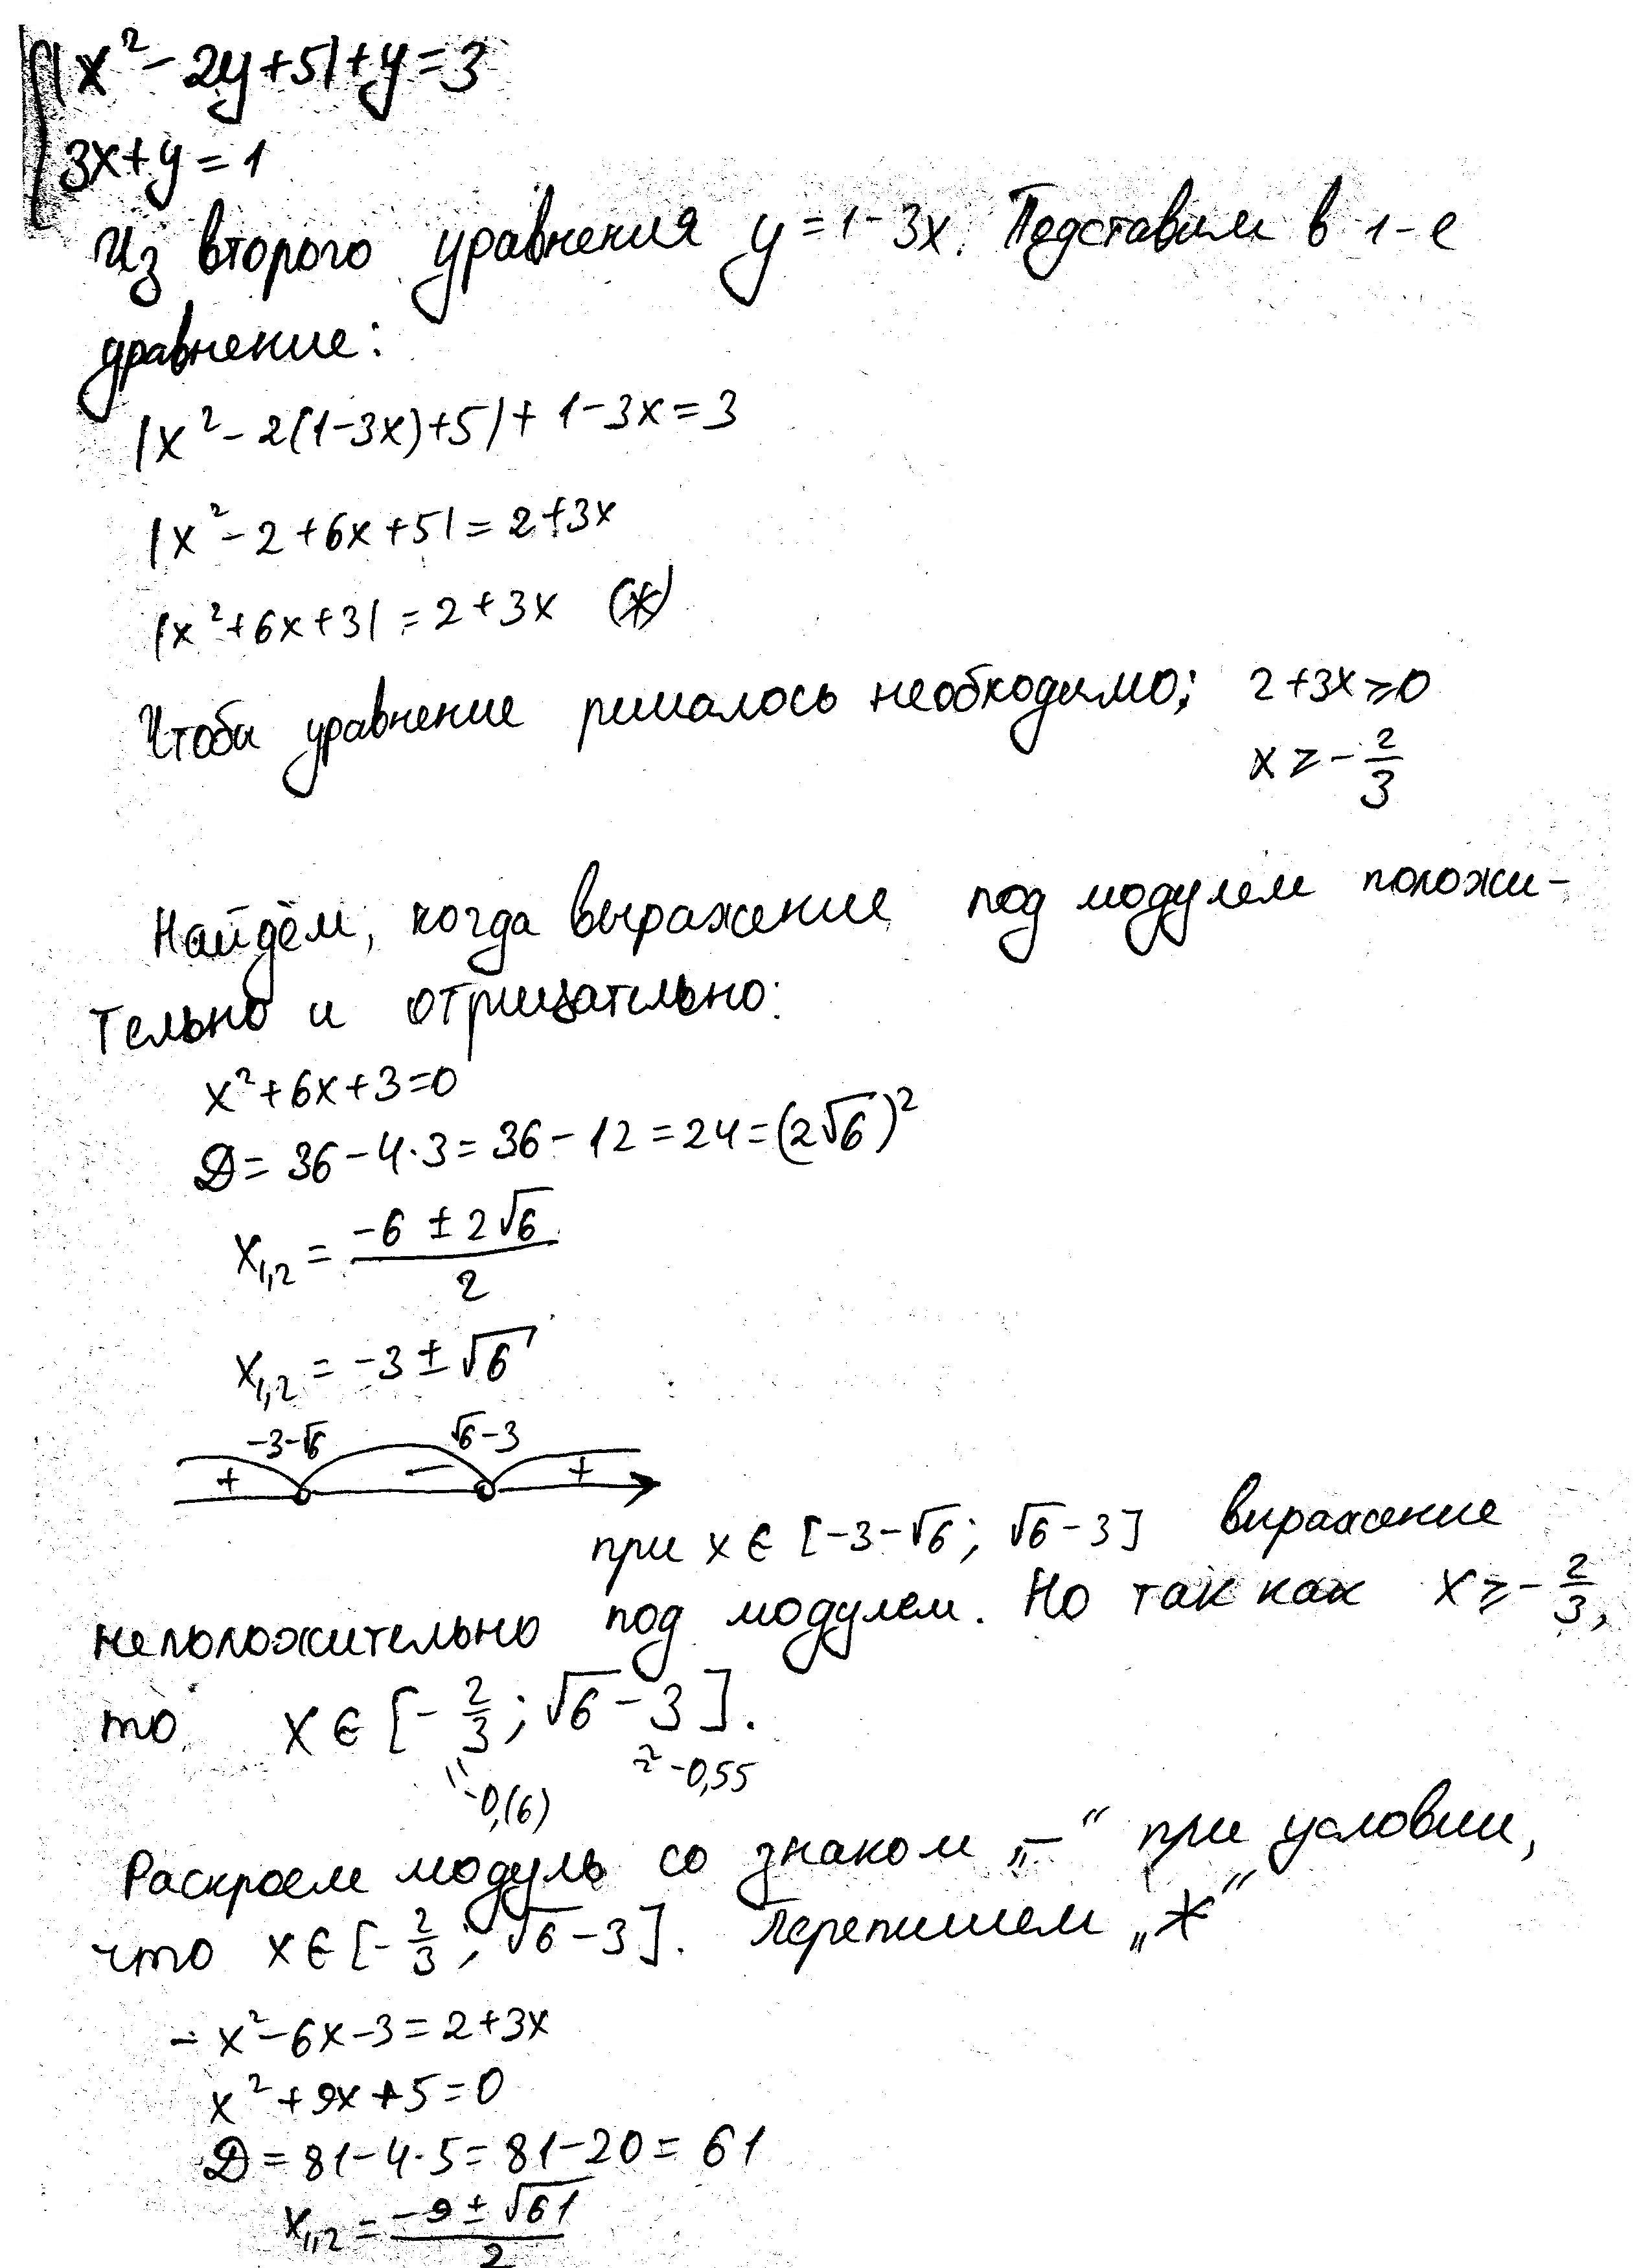 |x² - 2y + 5| + y = 3
3x + y = 1
Из второго уравнения y = 1 - 3x. Подставим в 1-е
уравнение:
|x² - 2(1 - 3x) + 5| + 1 - 3x = 3
|x² - 2 + 6x + 5| = 2 + 3x
|x² + 6x + 3| = 2 + 3x (*)
Чтоби уравнение решалось необходимо; 2 + 3x ≥ 0
x ≥ -2/3
Найдём, когда выражение под модулем положи-
тельно и отрицательно:
x² + 6x + 3 = 0
D = 36 - 4·3 = 36 - 12 = 24 = (2√6)²
x₁,₂ = (-6 ± 2√6)/2
x₁,₂ = -3 ± √6
-3-√6 √6-3
+ - +
при x ∈ [-3-√6; √6-3] виражение
неположительно под модулем. Но так как x ≥ -2/3,
то x ∈ [-2/3; √6-3].
-0,(6) ≈ -0,55
Раскроем модуль со знаком „-“ при условии,
что x ∈ [-2/3; √6-3]. Перепишем „*“
-x² - 6x - 3 = 2 + 3x
x² + 9x + 5 = 0
D = 81 - 4·5 = 81 - 20 = 61
x₁,₂ = (-9 ± √61)/2